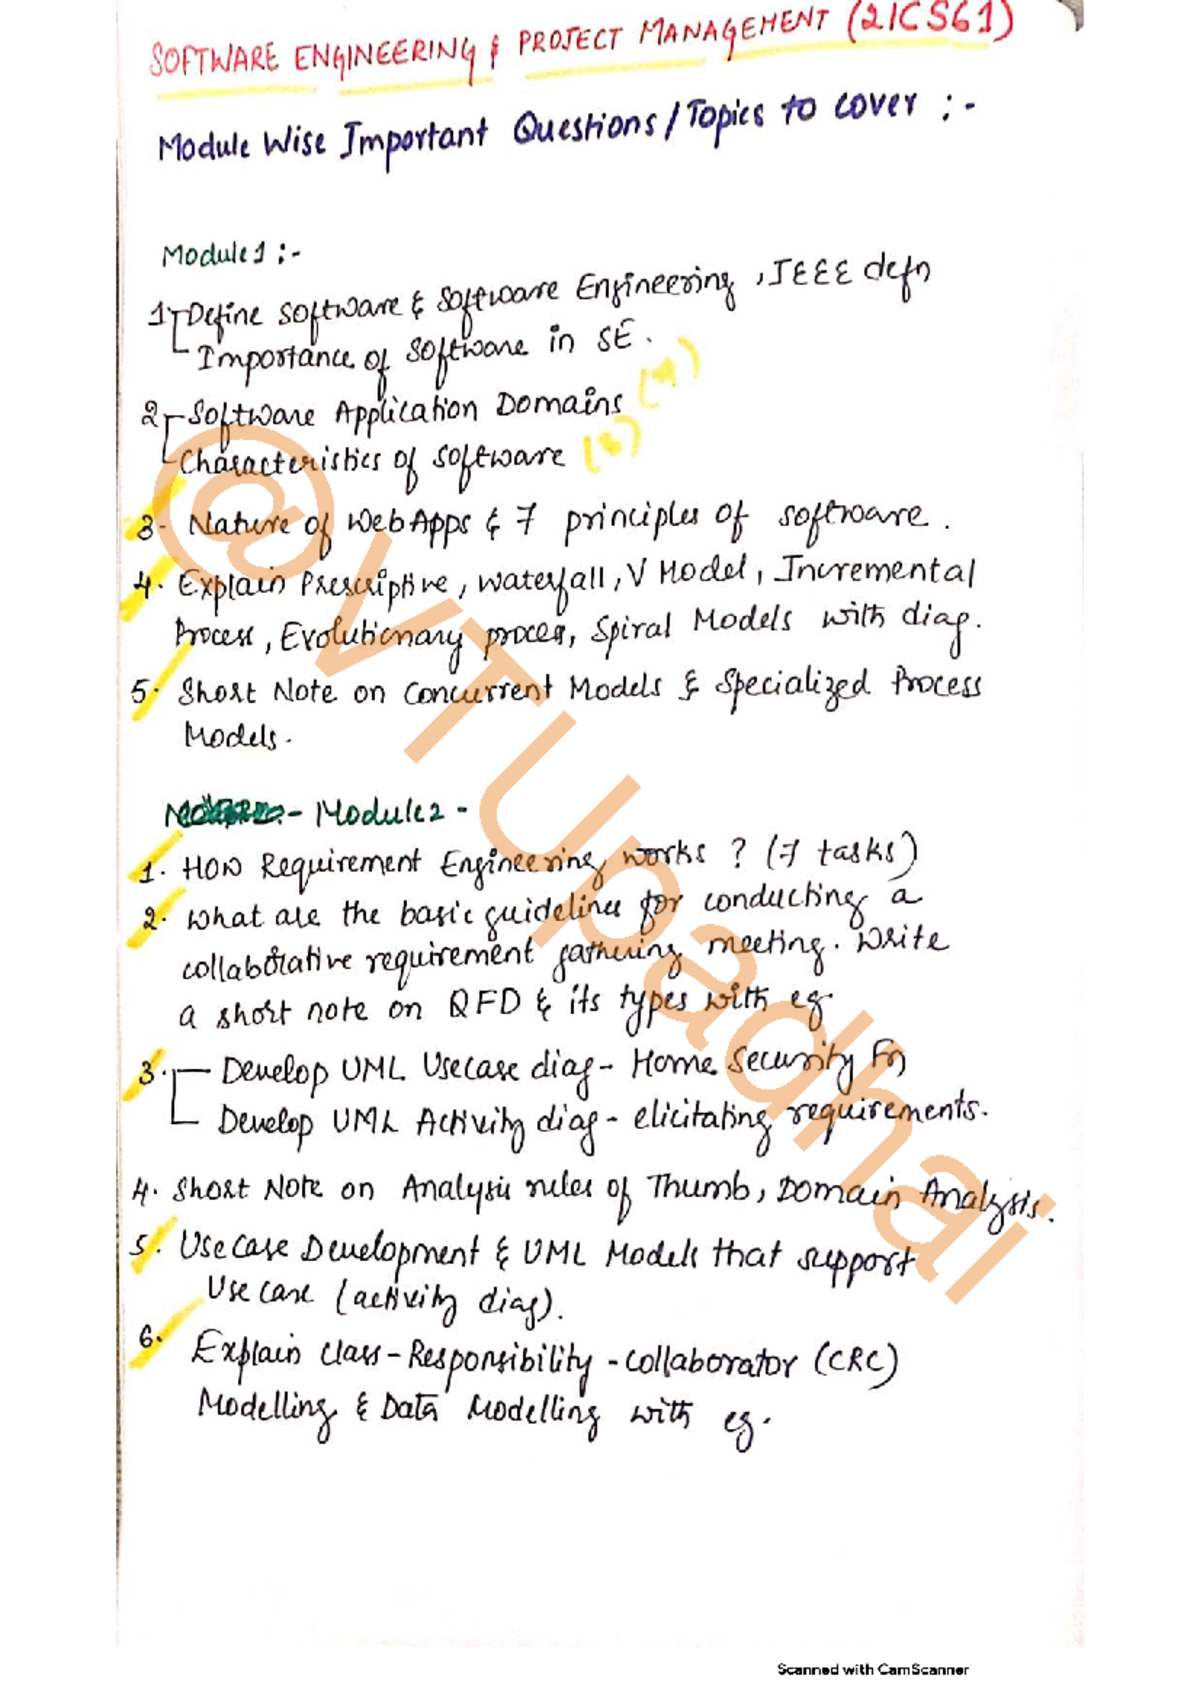 SOFTWARE ENGINEERING & PROJECT MANAGEMENT (21CS61)
Module Wise Important Questions / Topics to cover :-
Module 1 :-
1. Define software & Software Engineering, IEEE defn
Importance of software in SE.
2. Software Application Domains
Characteristics of software
3. Nature of WebApps & 7 principles of software.
4. Explain Prescriptive, waterfall, V Model, Incremental
Process, Evolutionary process, Spiral Models with diag.
5. Short Note on Concurrent Models & Specialized Process
Models.
- Module 2 -
1. How Requirement Engineering works ? (7 tasks)
2. What are the basic guidelines for conducting a
collaborative requirement gathering meeting. Write
a short note on QFD & its types with eg.
3. Develop UML Usecase diag - Home Security Fn
Develop UML Activity diag - elicitating requirements.
4. Short Note on Analysis rules of Thumb, Domain Analysis.
5. Use Case Development & UML Models that support
Use case (activity diag).
6. Explain Class-Responsibility-collaborator (CRC)
Modelling & Data Modelling with eg.
@VTUpadhai
Scanned with CamScanner